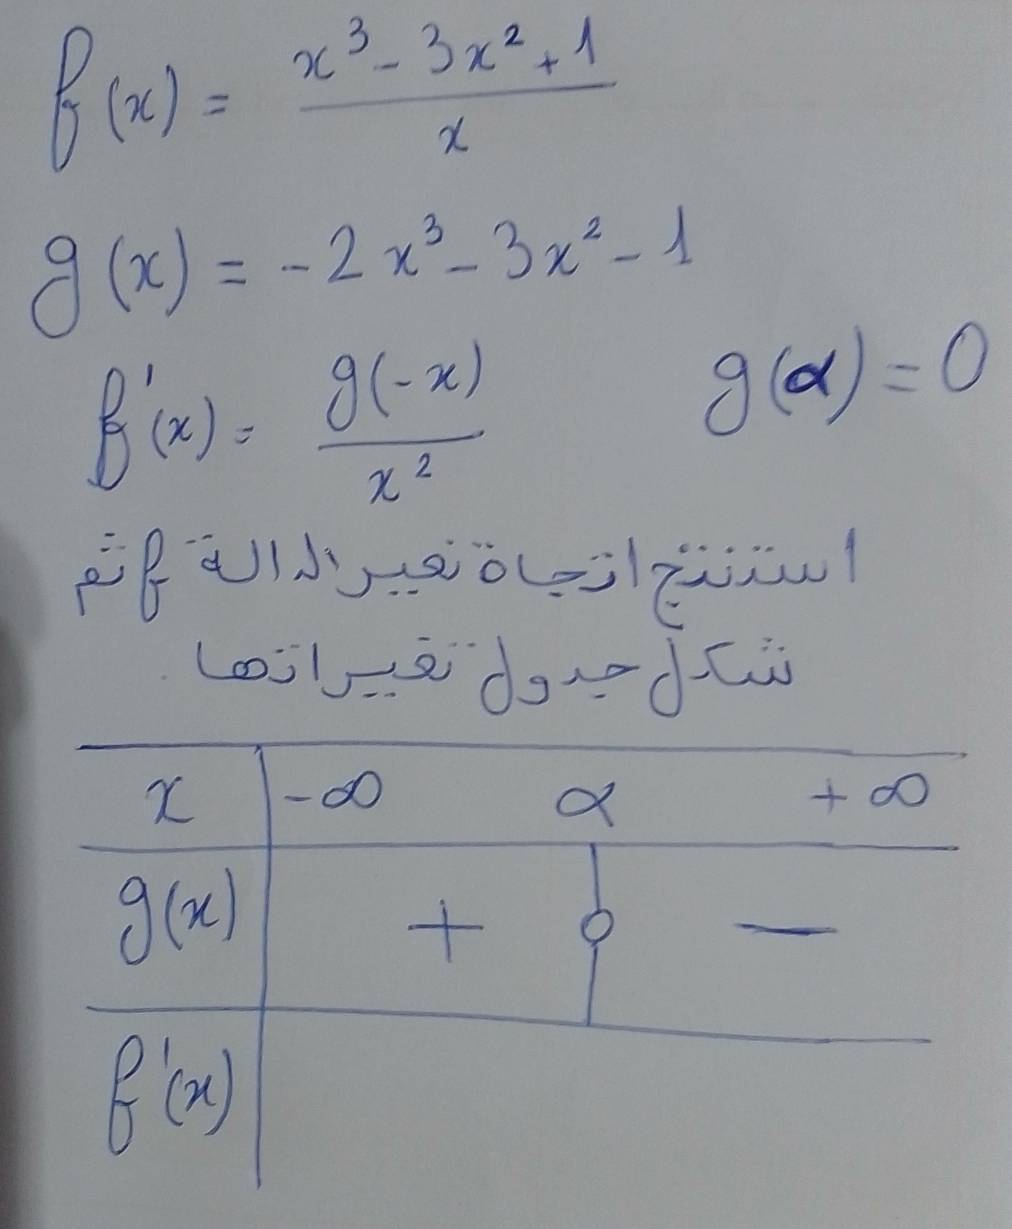 f(x) = (x³ - 3x² + 1) / x
g(x) = -2x³ - 3x² - 1
f'(x) = g(-x) / x² g(α) = 0
استنتج اتجاة تغير الدالة f ثم
شكل جدول تغيراتها
x -∞ α +∞
g(x) + 0 -
f'(x)